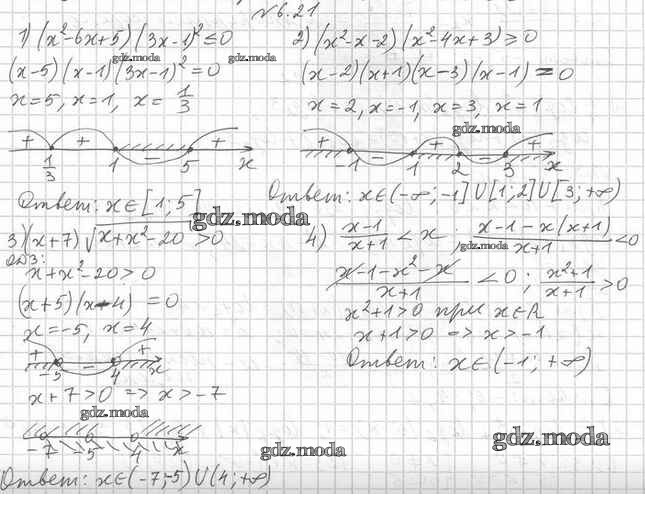 №6.21
1) (x²-6x+5)(3x-1)²≤0
(x-5)(x-1)(3x-1)²=0
x=5, x=1, x= 1/3
+ + - +
1/3 1 5 x
Ответ: x∈[1;5]
2) (x²-x-2)(x²-4x+3)≥0
(x-2)(x+1)(x-3)(x-1)=0
x=2, x=-1, x=3, x=1
+ - + - +
-1 1 2 3 x
Ответ: x∈(-∞;-1]∪[1;2]∪[3;+∞)
3) (x+7)√x+x²-20>0
ОДЗ:
x+x²-20>0
(x+5)(x-4)=0
x=-5, x=4
+ - +
-5 4 x
x+7>0 => x>-7
-7 -5 4 x
Ответ: x∈(-7;-5)∪(4;+∞)
4) (x-1)/(x+1) < x ; (x-1-x(x+1))/(x+1) <0
(x-1-x²-x)/(x+1) <0 ; (x²+1)/(x+1) >0
x²+1>0 при x∈R
x+1>0 => x>-1
Ответ: x∈(-1;+∞)
gdz.moda
gdz.moda
gdz.moda
gdz.moda
gdz.moda
gdz.moda
gdz.moda
gdz.moda